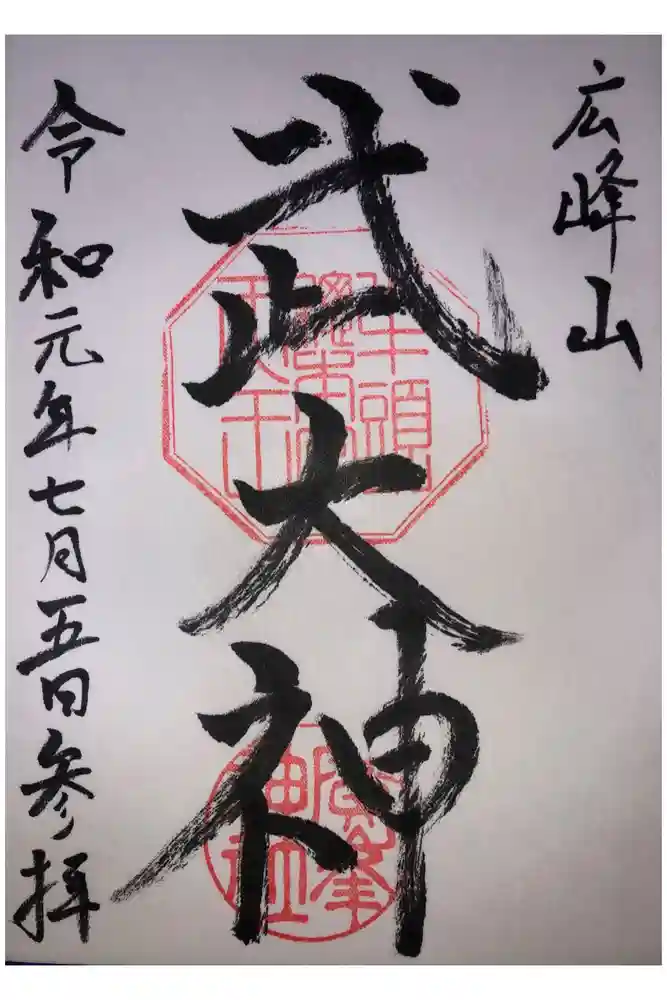 広峰山
武大神
牛頭
總本宮
天王
廣峯
神社
令和元年七月五日参拝